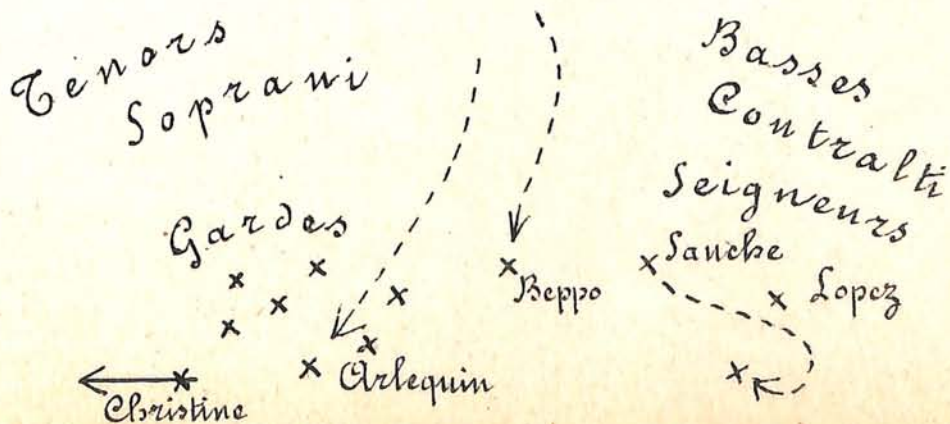 Ténors
Soprani
Basses
Contralti
Seigneurs
Gardes
Sanche
Beppo
Lopez
Arlequin
Christine